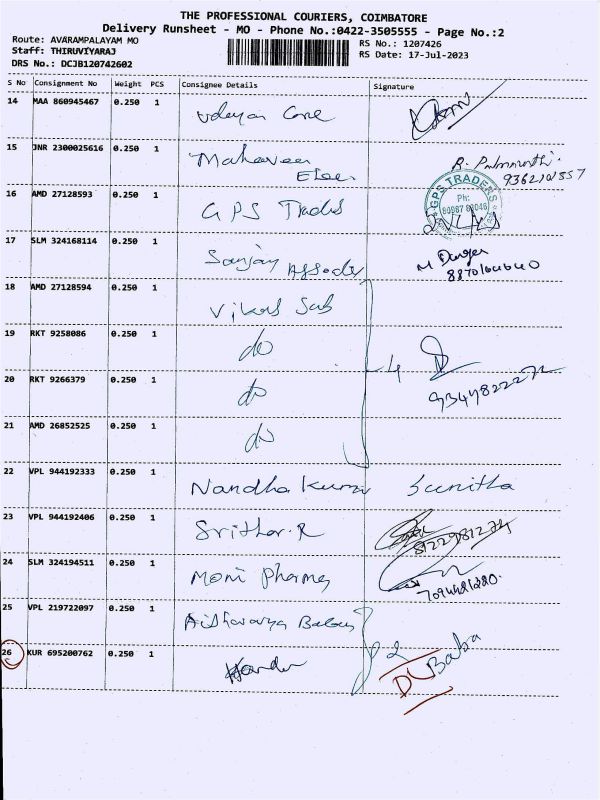 THE PROFESSIONAL COURIERS, COIMBATORE
Delivery Runsheet - MO - Phone No.:0422-3505555 - Page No.:2
Route: AVARAMPALAYAM MO
RS No.: 1207426
Staff: THIRUVIYARAJ
RS Date: 17-Jul-2023
DRS No.: DCJB120742602
S No Consignment No Weight PCS Consignee Details Signature
14 MAA 860945467 0.250 1
15 JNR 2300025616 0.250 1 Mahaveer
16 AMD 27128593 0.250 1 GPS Trades
GPS TRADERS
Ph:
17 SLM 324168114 0.250 1 Sanjay
18 AMD 27128594 0.250 1 Vikas Sab
19 RKT 9258086 0.250 1 do
20 RKT 9266379 0.250 1 do
4
21 AMD 26852525 0.250 1 do
22 VPL 944192333 0.250 1 Nandha Kumar Sunitha
23 VPL 944192406 0.250 1 Srithar.R
24 SLM 324194511 0.250 1 Moni Pharma
25 VPL 219722097 0.250 1
26 KUR 695200762 0.250 1
2 Baba